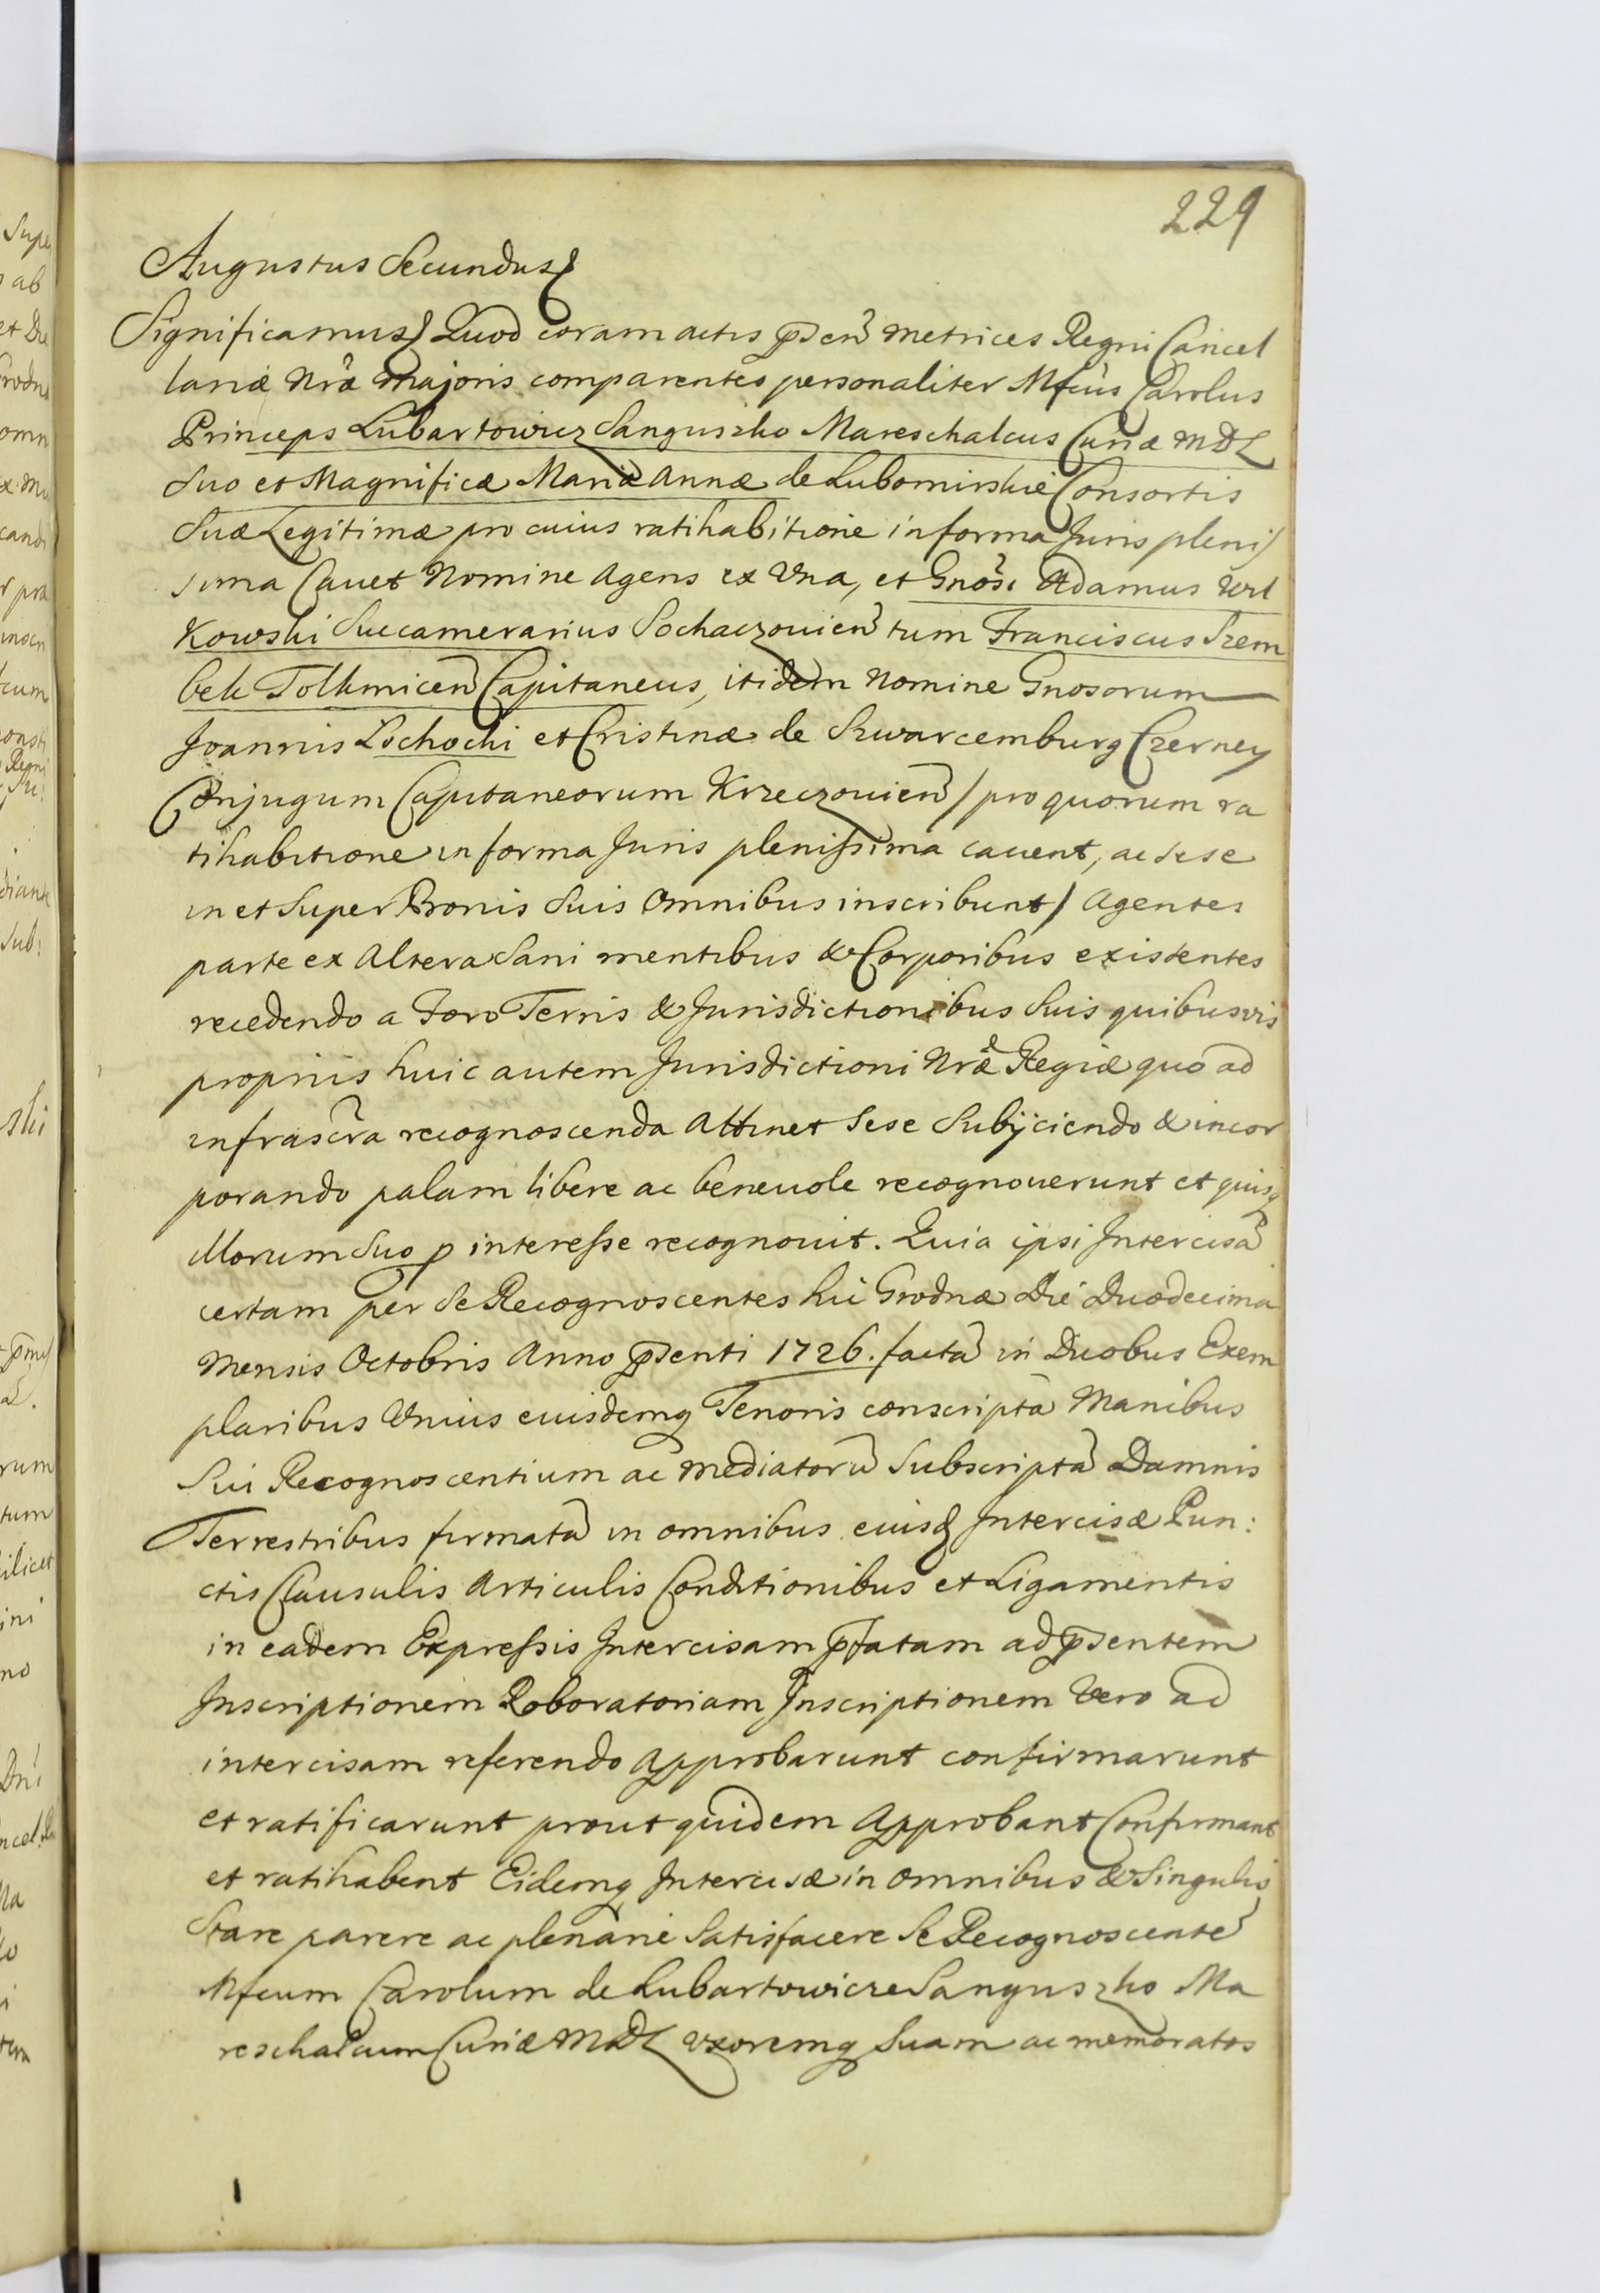 229
Augustus Secundus
Significamus Quod coram actis pñsen Metrices Regni Cancel
lariæ Nrã Majoris comparentes personaliter Mfcus Carolus
Princeps Lubartowicz Sanguszko Mareschalcus Curiæ MDL
Suo et Magnificæ Mariæ Annæ de Lubomirskie Consortis
Suæ Legitimæ pro cuius ratihabitione in forma Juris plenis
sima Cauet Nomine Agens ex Vna, et Gnosi Adamus
Kowski Succamerarius Sochaczouien tum Franciscus Szem
bek Tolkmicen Capitaneus, itidem Nomine Gnosorum
Joannis Lochocki et Cristinæ de Szwarcemburg Czerney
Conjugum Capitaneorum Krzeczouien / pro quorum ra
tihabitione in forma Juris plenissima cauent, ac sese
in et Super Bonis Suis Omnibus inscribunt / Agentes
parte ex Altera Sani mentibus & Corporibus existentes
recedendo a Foro Terris & Jurisdictionibus Suis quibusvis
proprijs huic autem Jurisdictioni Nræ Regiæ quo ad
infrascra recognoscenda Attinet Sese Subijciendo & incor
porando palam libere ac beneuole recognouerunt et quisq
Illorum Suo p interesse recognouit. Quia ipsi Intercisã
certam per Se Recognoscentes hic Grodnæ Die Duodecima
Mensis Octobris Anno pñsenti 1726. factã in Duobus Exem
plaribus Vnius eiusdemq Tenoris conscriptã Manibus
Sui Recognoscentium ac Mediatorũ Subscriptã Damnis
Terrestribus firmatã in omnibus eiusd Intercisæ Pun:
ctis Clausulis Articulis Conditionibus et Ligamentis
in eadem Expressis Intercisam pfatam ad pñsentem
Inscriptionem Roboratoriam Inscriptionem Vero ad
intercisam referendo Approbarunt confirmarunt
et ratificarunt prout quidem Approbant Confirmant
et ratihabent Eidemq Intercisæ in Omnibus & Singulis
Stare parere ac plenarie Satisfacere Se Recognoscentẽ
Mfcum Carolum de Lubartowicze Sanguszko Ma
reschalcum Curiæ MDL Vxoremq Suam ac memoratos